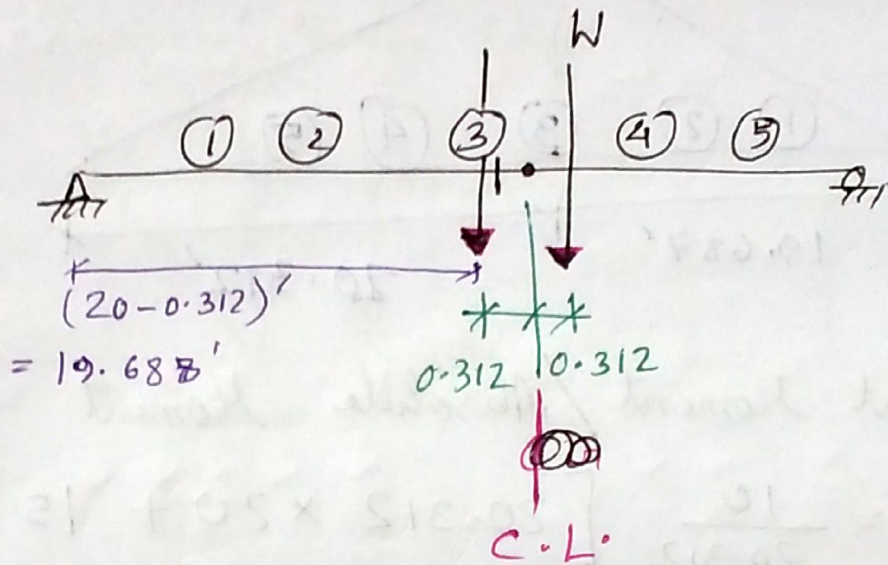 W
① ② ③ ④ ⑤
(20-0.312)'
= 19.688'
0.312 0.312
C.L.